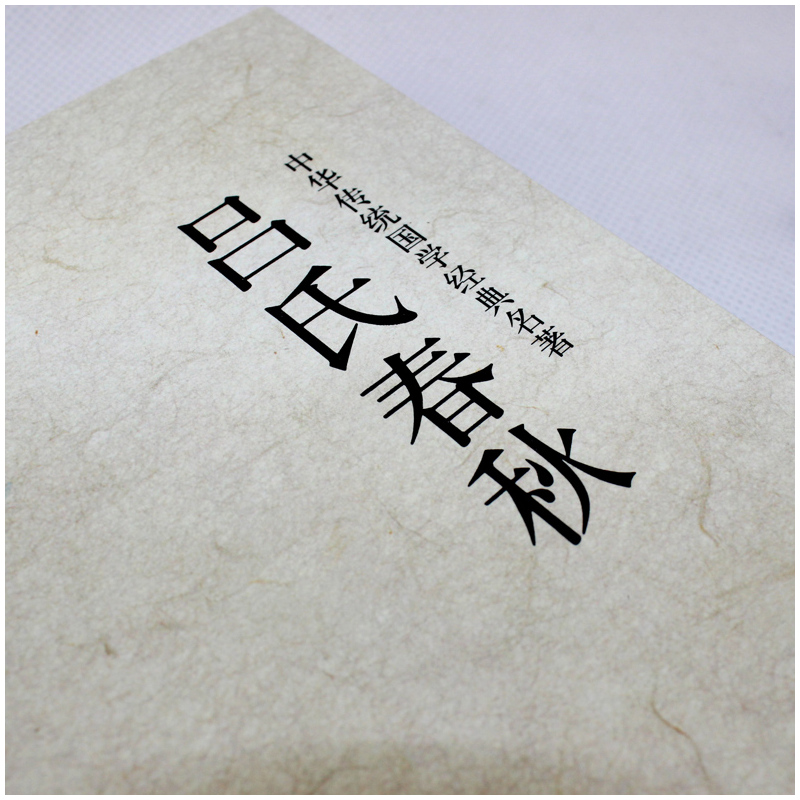 中华传统国学经典名著
吕氏春秋